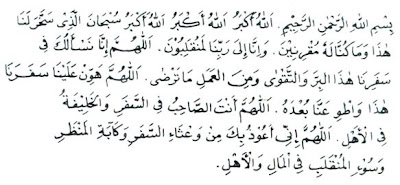 بِسْمِ اللهِ الرَّحْمٰنِ الرَّحِيْمِ. اَللهُ اَكْبَرُ اَللهُ اَكْبَرُ اَللهُ اَكْبَرُ سُبْحَانَ الَّذِىْ سَخَّرَلَنَا
هٰذَا وَمَاكُنَّالَهُ مُقْرِنِيْنَ. وَاِنَّآ اِلَى رَبِّنَا لَمُنْقَلِبُوْنَ. اَللّٰهُمَّ اِنَّا نَسْأَلُكَ فِى
سَفَرِنَا هٰذَا الْبِرَّ وَالتَّقْوٰى وَمِنَ الْعَمَلِ مَاتَرْضٰى. اَللّٰهُمَّ هَوِّنْ عَلَيْنَا سَفَرَنَا
هٰذَا وَاطْوِ عَنَّا بُعْدَهُ. اَللّٰهُمَّ اَنْتَ الصَّاحِبُ فِى السَّفَرِ وَالْخَلِيْفَةُ
فِى الْاَهْلِ. اَللّٰهُمَّ اِنِّى اَعُوْذُبِكَ مِنْ وَعْثَاءِ السَّفَرِ وَكَآبَةِ الْمَنْظَرِ
وَسُوْءِ الْمُنْقَلَبِ فِى الْمَالِ وَالْاَهْلِ.